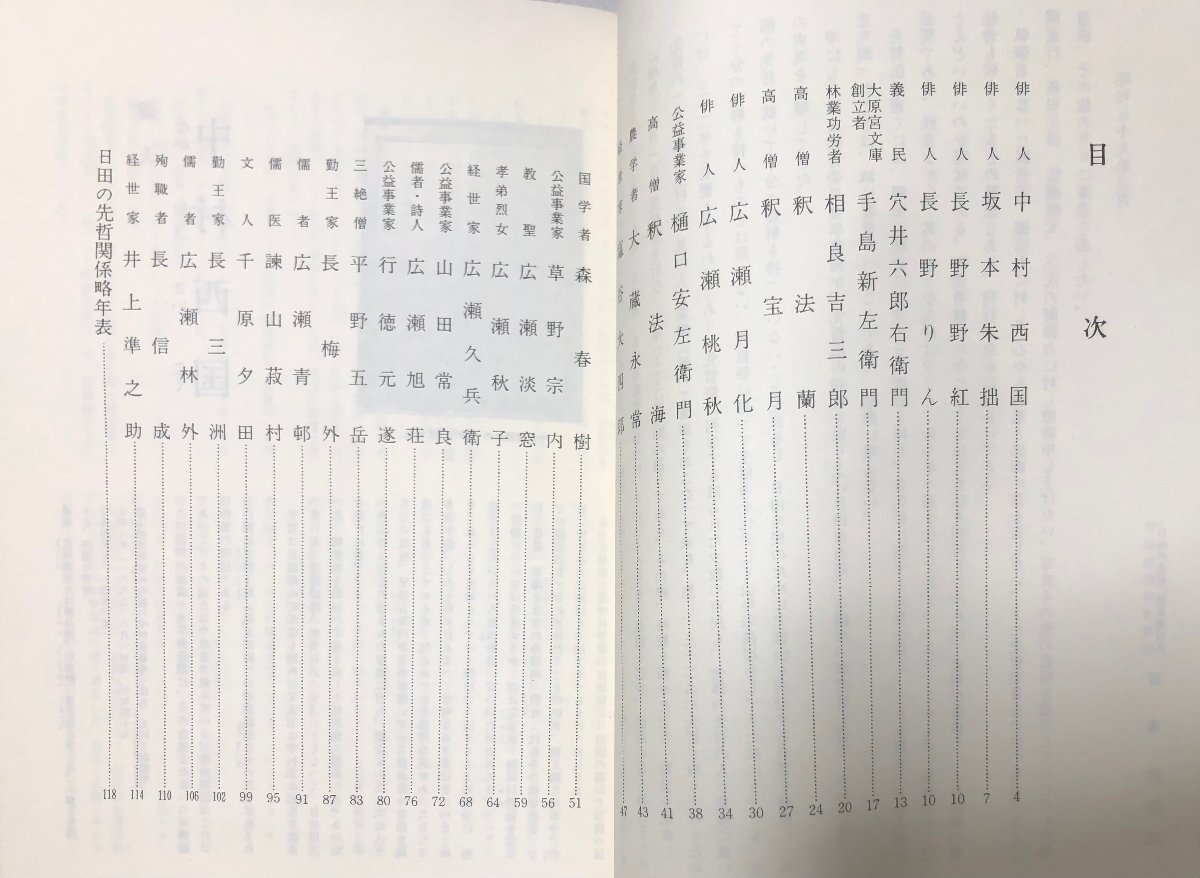 目次
俳人 中村西国 4
俳人 坂本朱拙 7
俳人 長野野紅 10
俳人 長野りん 10
義民 穴井六郎右衛門 13
大原宮文庫創立者 手島新左衛門 17
林業功労者 相良吉三郎 20
高僧 釈法蘭 24
高僧 釈宝月 27
俳人 広瀬月化 30
俳人 広瀬桃秋 34
公益事業家 樋口安左衛門 38
高僧 釈法海 41
農学者 大蔵永常 43
四郎 47
国学者 森春樹 51
公益事業家 草野宗内 56
教聖 広瀬淡窓 59
孝弟烈女 広瀬秋子 64
経世家 広瀬久兵衛 68
公益事業家 山田常良 72
儒者・詩人 広瀬旭荘 76
公益事業家 行徳元遂 80
三絶僧 平野五岳 83
勤王家 長梅外 87
儒者 広瀬青邨 91
儒医 諫山菽村 95
文人 千原夕田 99
勤王家 長三洲 102
儒者 広瀬林外 106
殉職者 長信成 110
経世家 井上準之助 114
日田の先哲関係略年表 118